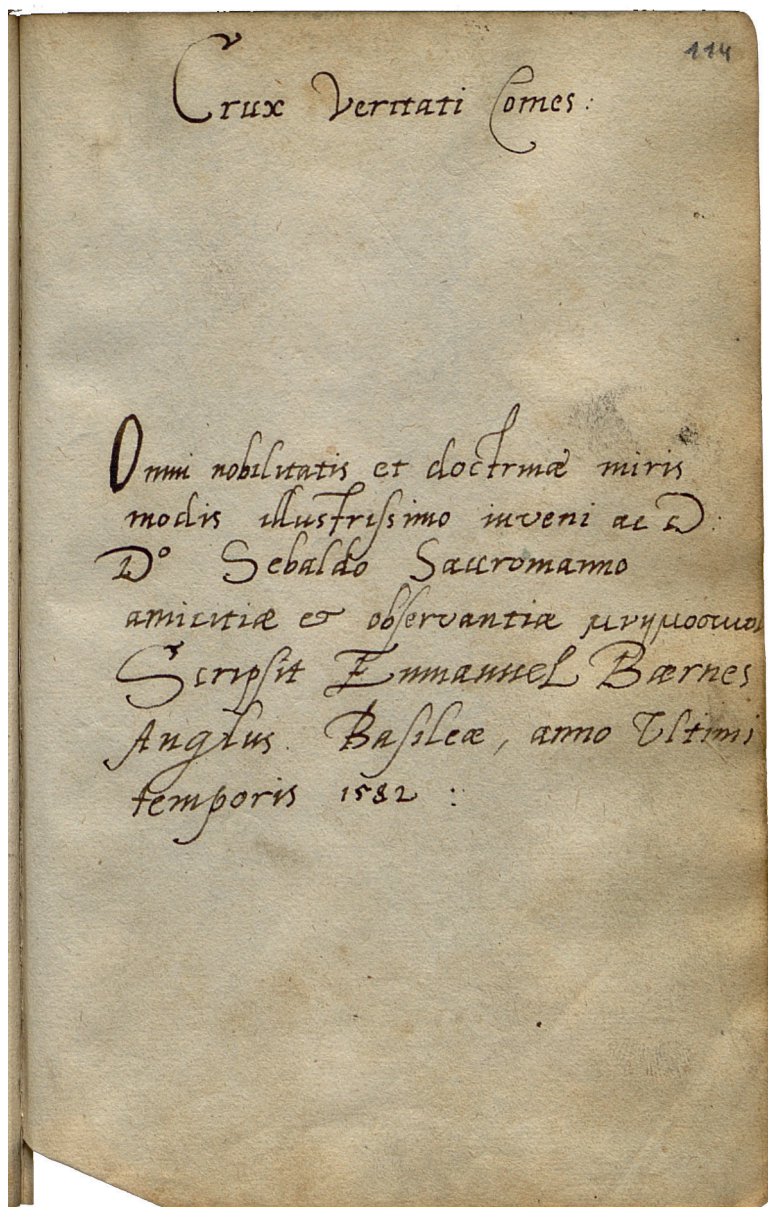 114
Crux Veritati Comes :
Omni nobilitatis et doctrinæ miris
modis illustrissimo iuveni ac D :
Dº Sebaldo Saucromanno
amicitiæ et observantiæ μνημοσυνον
Scripsit Emmanuel Bærnes
Anglus. Basileæ, anno Ultimi
temporis 1582 :